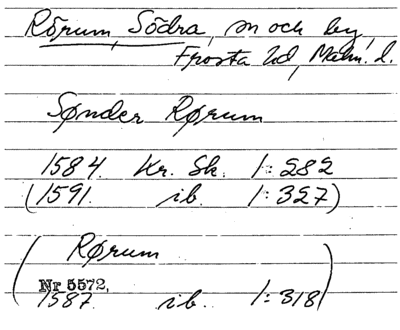 Rörum, Södra, sn och by,
Frosta hd, Malm. l.
Sønder Rørum
1584. Kr. Sk. 1:282
(1591. ib. 1:327)
(Rørum
Nr 5572.
1587. ib. 1:318)